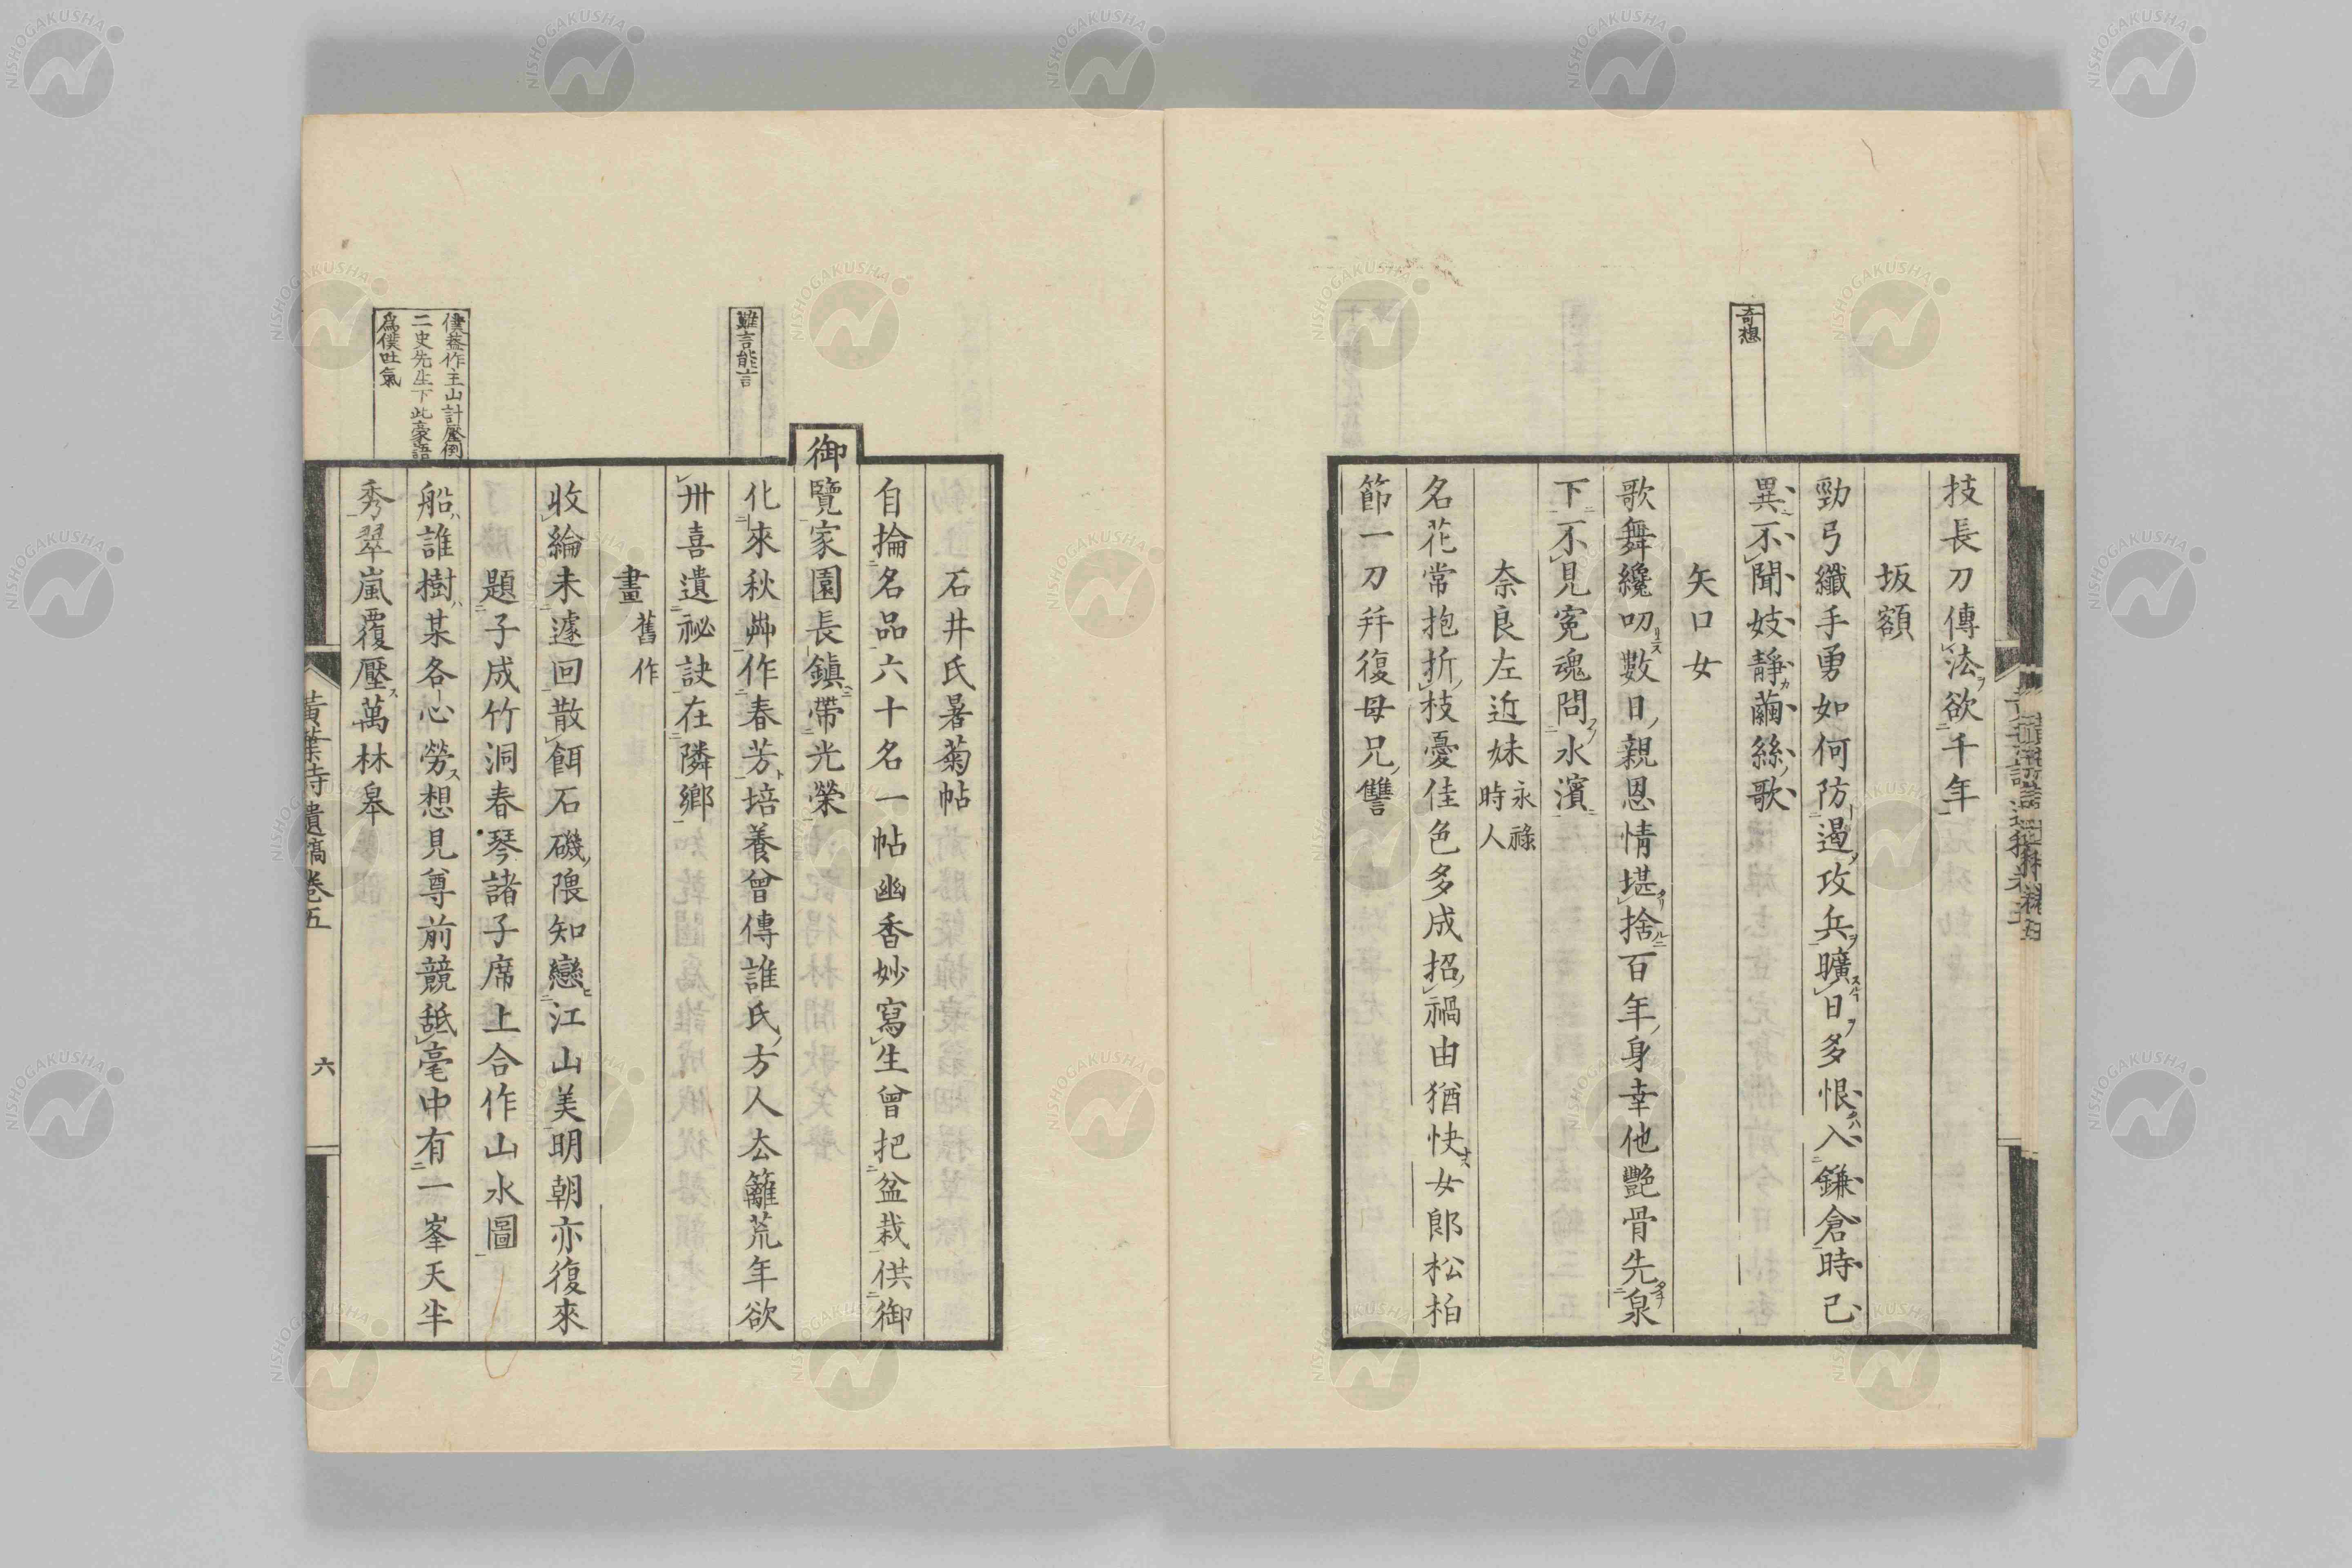 奇想
技長刀傳法ヲ欲千年
坂額
勁弓纖手勇如何防遏攻兵曠日多恨入鎌倉時已
異不聞妓靜繭絲歌
矢口女
歌舞纔叨數日親恩情堪捨百年身幸他艷骨先泉
下不見寃魂問水濱
奈良左近妹永祿時人
名花常抱折枝憂佳色多成招禍由猶快女郞松柏
節一刀拜復母兄讐
雖言能言
僕葢作主山計壓倒
二史先生下此豪語
爲僕吐氣
石井氏暑菊帖
自掄名品六十名一帖幽香妙寫生曾把盆栽供御
御覽家園長鎮帶光榮
化來秋艸作春芳培養曾傳誰氏方人厺籬荒年欲
卅喜遺祕訣在隣鄉
畫舊作
收綸未遽回散餌石磯隈知戀江山美明朝亦復來
題子成竹洞春琴諸子席上合作山水圖
船誰樹某各心勞想見尊前競舐毫中有一峯天半
秀翠嵐覆壓萬林皋
黃葉
遺稿卷五
六
NISHOGAKUSHA